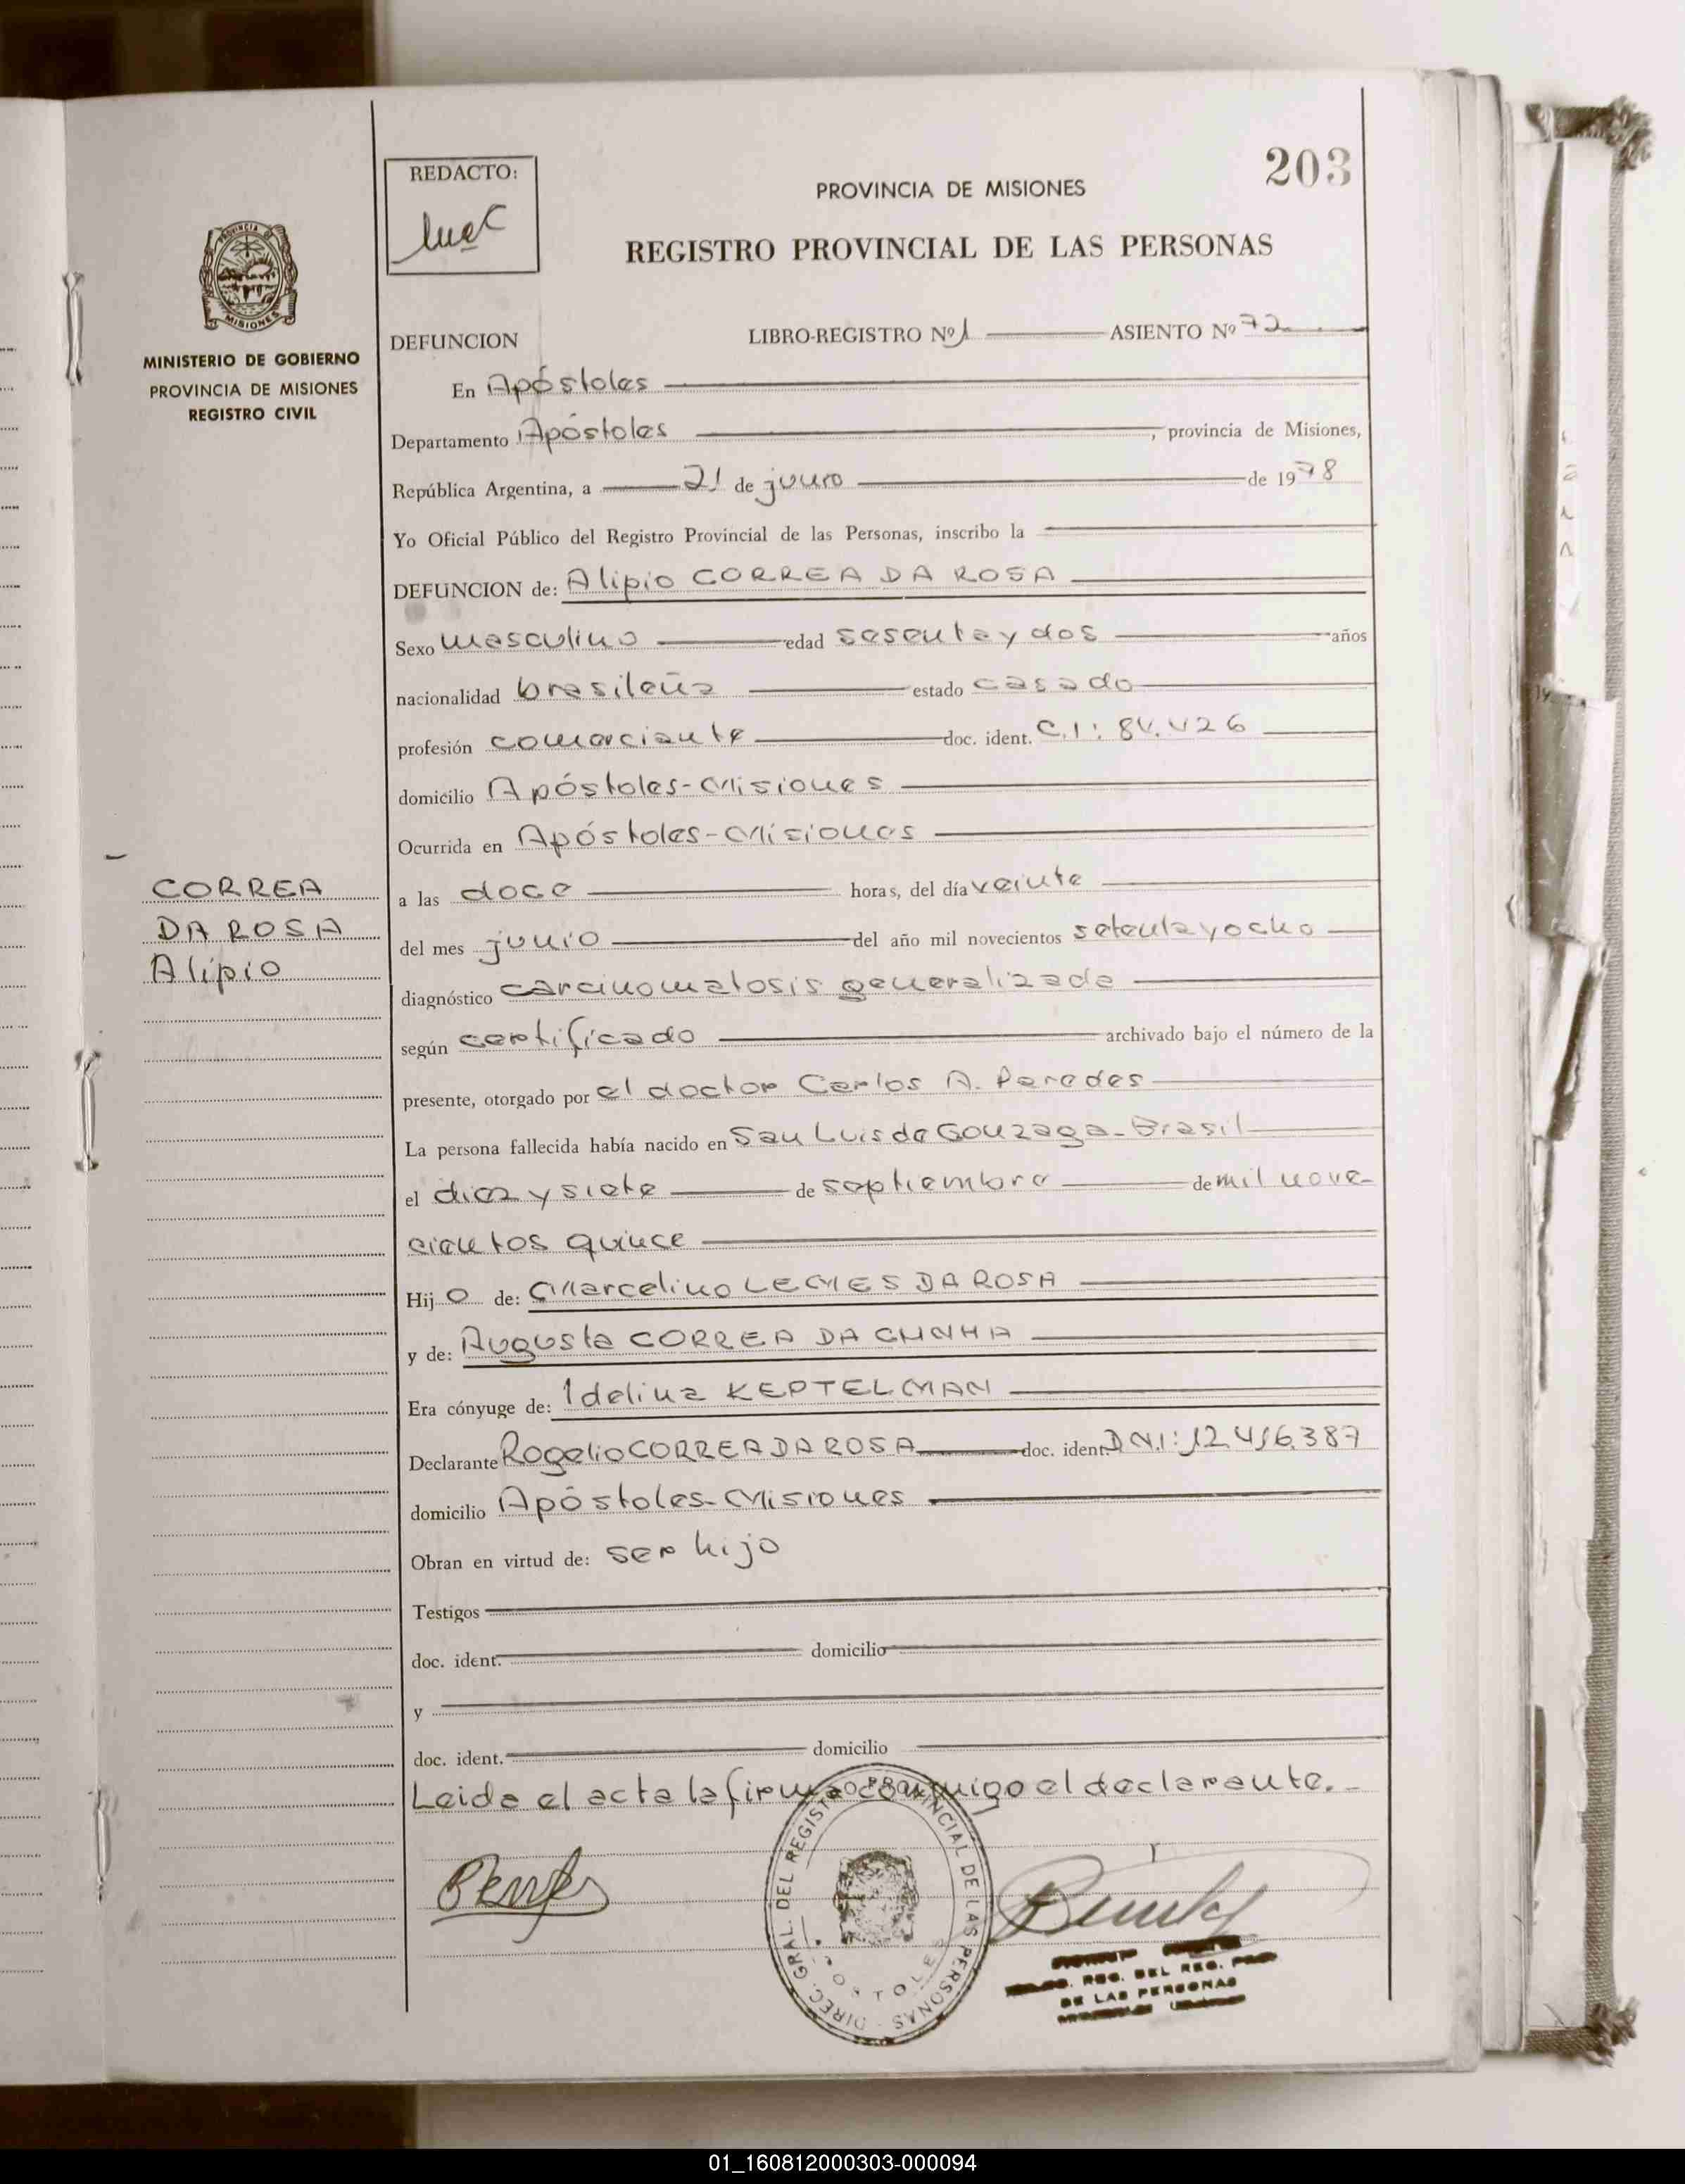 203
REDACTO:
PROVINCIA DE MISIONES
REGISTRO PROVINCIAL DE LAS PERSONAS
PROVINCIA DE
MISIONES
MINISTERIO DE GOBIERNO
PROVINCIA DE MISIONES
REGISTRO CIVIL
DEFUNCION LIBRO-REGISTRO Nº 1 ASIENTO Nº 72
En Apóstoles
Departamento Apóstoles, provincia de Misiones,
República Argentina, a 21 de junio de 1978
Yo Oficial Público del Registro Provincial de las Personas, inscribo la
DEFUNCION de: Alipio CORREA DA ROSA
Sexo masculino edad sesenta y dos años
nacionalidad brasileña estado casado
profesión comerciante doc. ident. C.I: 84.426
domicilio Apóstoles-Misiones
Ocurrida en Apóstoles-Misiones
CORREA
DA ROSA
Alipio
a las doce horas, del día veinte
del mes junio del año mil novecientos setenta y ocho
diagnóstico carcinomatosis generalizada
según certificado archivado bajo el número de la
presente, otorgado por el doctor Carlos A. Paredes
La persona fallecida había nacido en San Luis de Gonzaga-Brasil
el diez y siete de septiembre de mil nove-
cientos quince
Hijo de: Marcelino LEMES DA ROSA
y de: Augusta CORREA DA CUNHA
Era cónyuge de: Idelina KEPTELMAN
Declarante Rogelio CORREA DA ROSA doc. ident. DNI: 12.416.387
domicilio Apóstoles-Misiones
Obran en virtud de: ser hijo
Testigos
doc. ident. domicilio
y
doc. ident. domicilio
Leida el acta la firma conmigo el declarante.-
DIREC. GRAL. DEL REGISTRO PROVINCIAL DE LAS PERSONAS
APOSTOLES
REG. DEL REG. PROV.
DE LAS PERSONAS
01_160812000303-000094